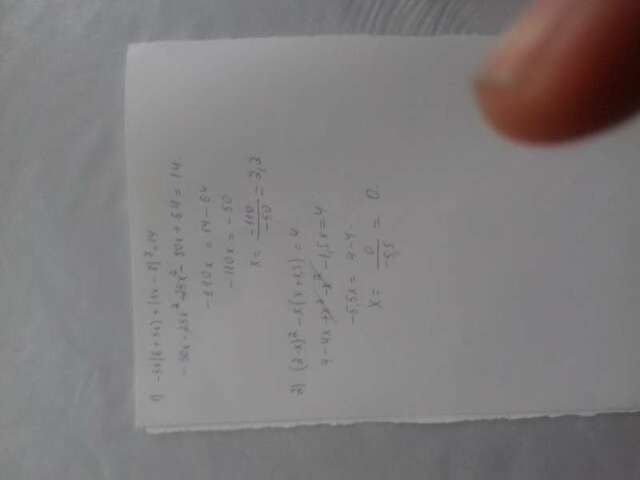 1) -5x(8+5x)+(5x-8)²=14
-30x-25x²+25x²-80x+64=14
-110x=14-64
-110x=-50
x= -110/-50 =2,2
2) (2-x)²-x(x+1,5)=4
4-4x+x²-x²-1,5x=4
-5,5x=4-4
x= 0/-5,5 =0